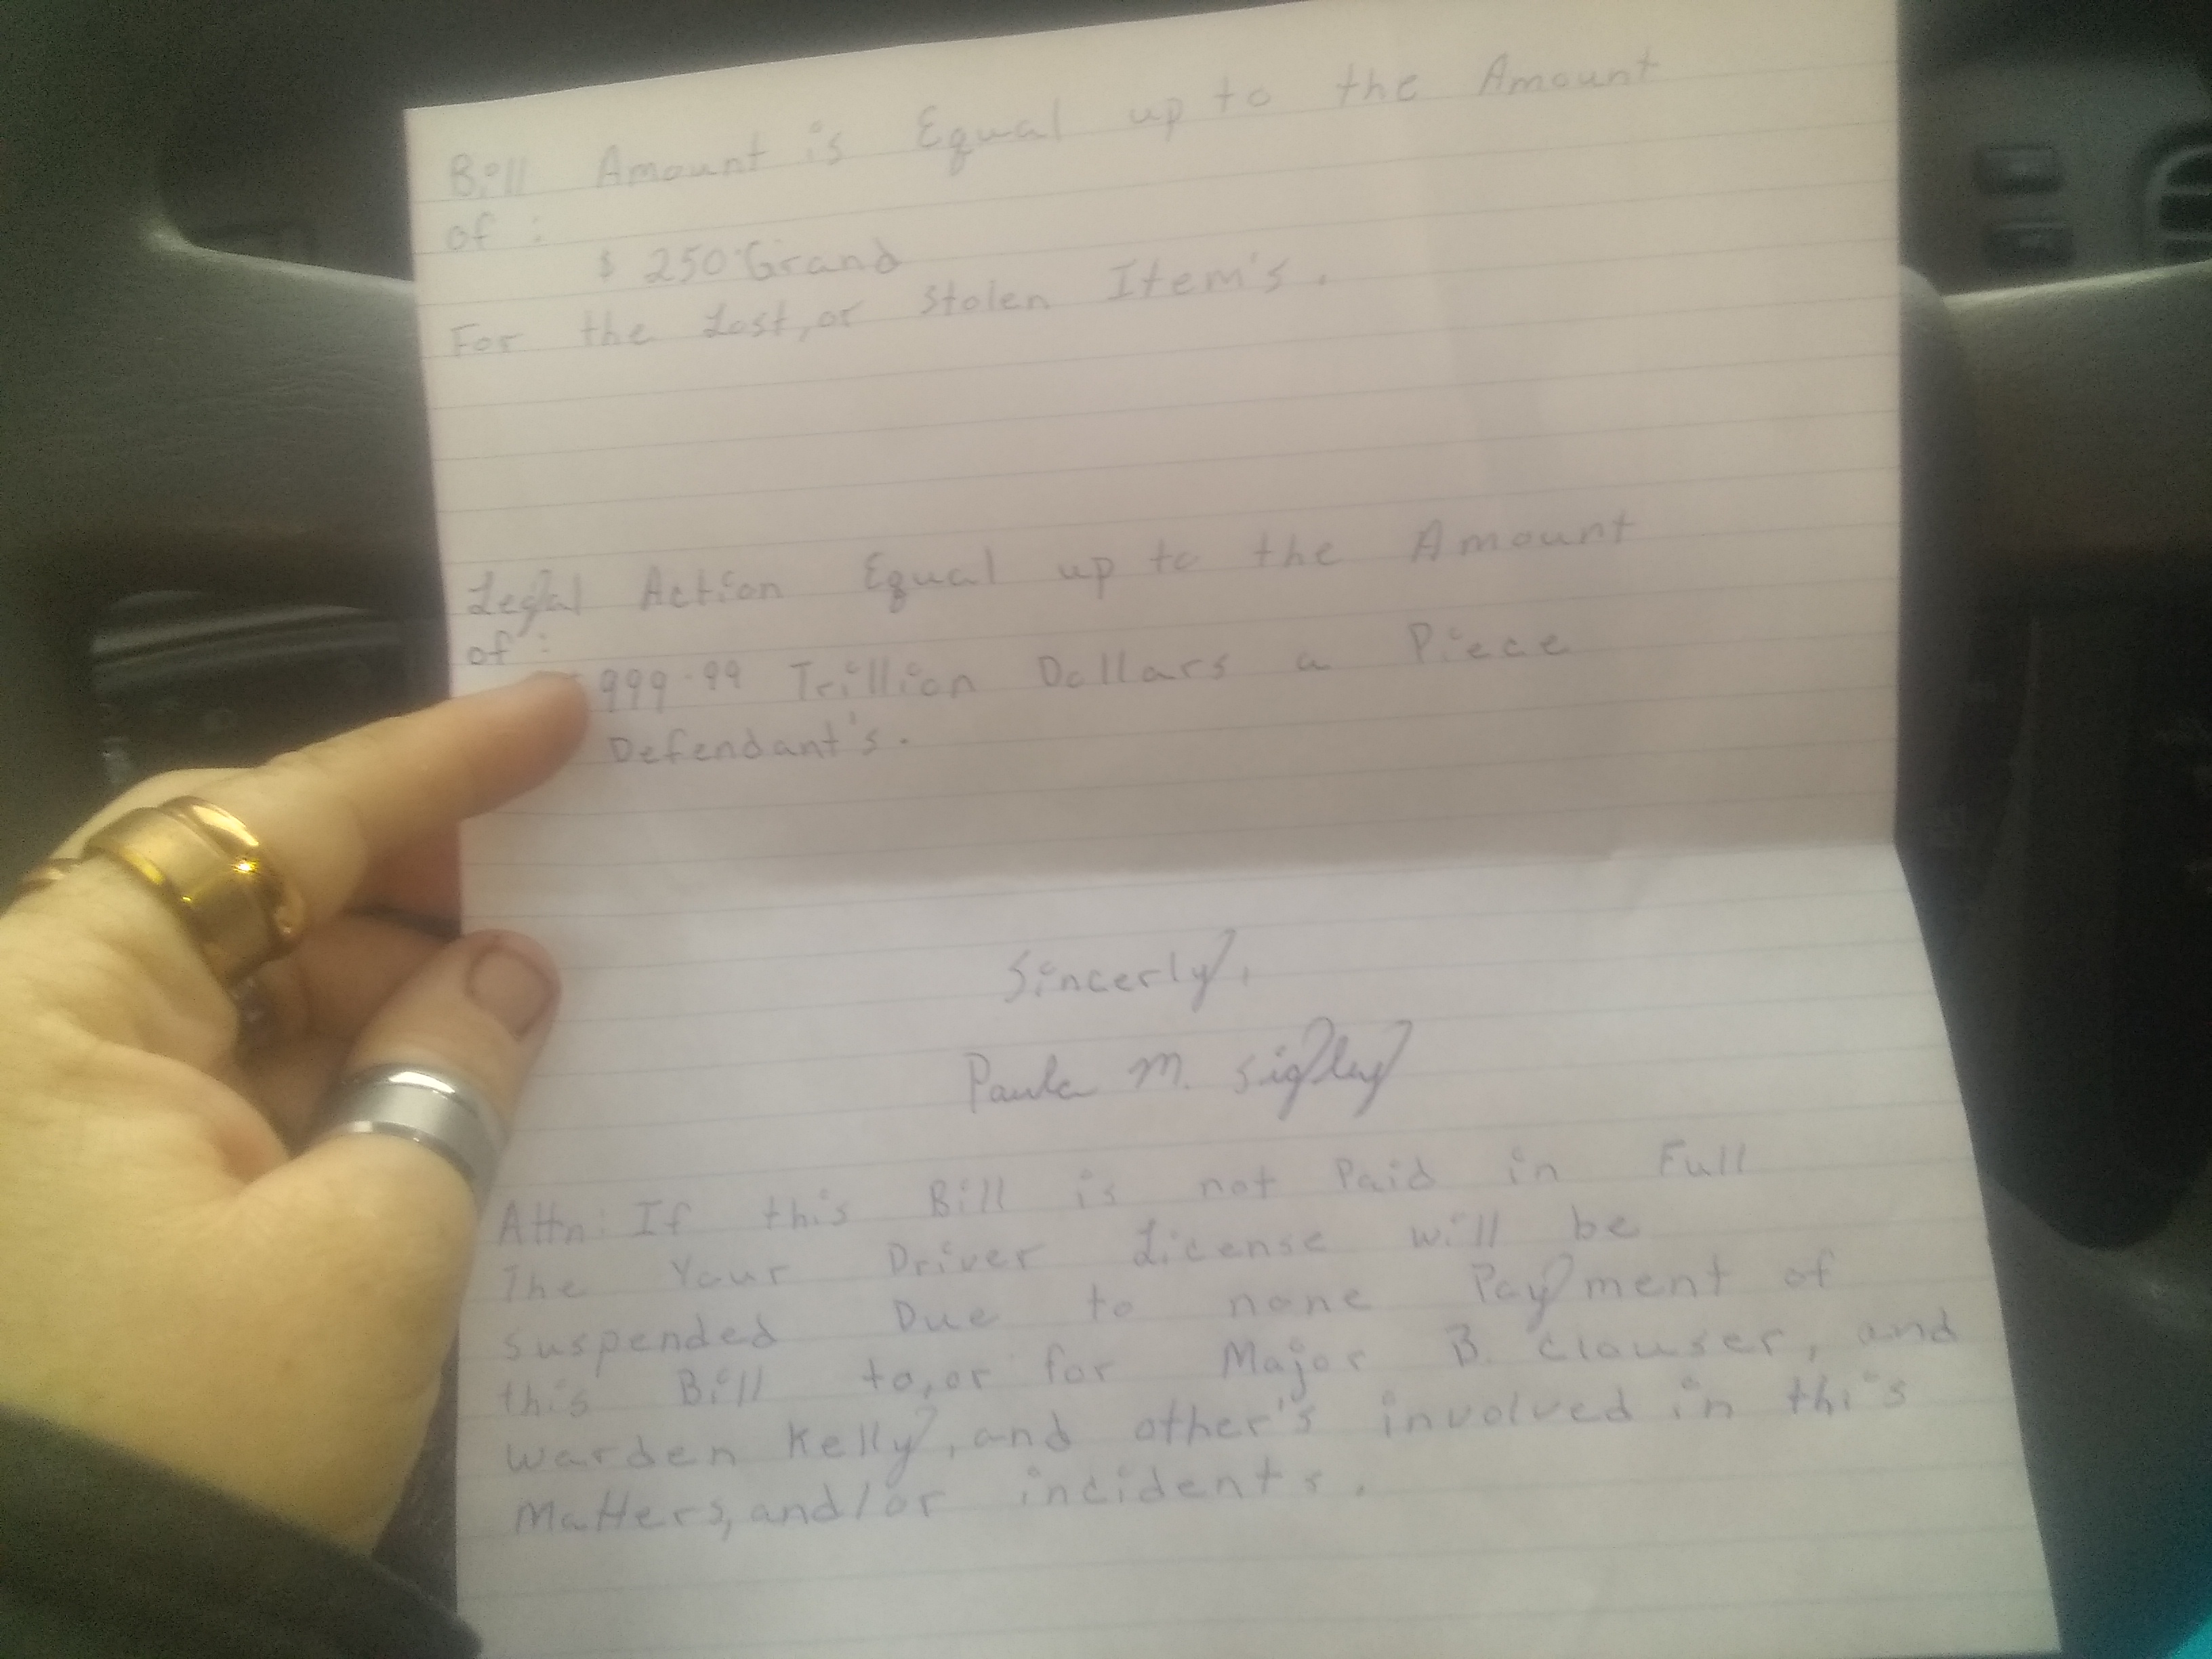 Bill Amount is Equal up to the Amount
of :
$ 250 Grand
For the Lost, or Stolen Item's.
Legal Action Equal up to the Amount
of :
999.99 Trillion Dollars a Piece
Defendant's.
Sincerly,
Paula M. Sigley
Attn: If this Bill is not Paid in Full
The Your Driver License will be
suspended Due to none Payment of
this Bill to, or for Major B. Clouser, and
Warden Kelly, and other's involved in this
Matters, and/or incidents.